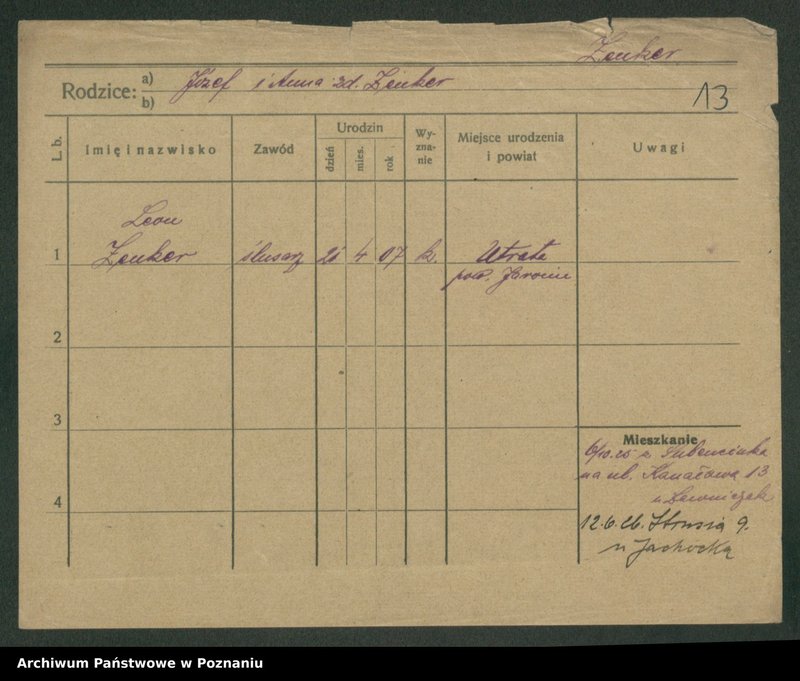 Zenker
Rodzice: a) Józef i Anna zd. Zenker
b)
13
L. b.
Imię i nazwisko
Zawód
Urodzin
dzień
mies.
rok
Wy-
zna-
nie
Miejsce urodzenia
i powiat
Uwagi
Leon
1 Zenker ślusarz 4 07 k. Utrata
pow. Jarocin
2
3
Mieszkanie
6/10.25 z
na ul. Kanałową 13
4 u
12.6.26. Strusia 9.
u Jachocka
Archiwum Państwowe w Poznaniu